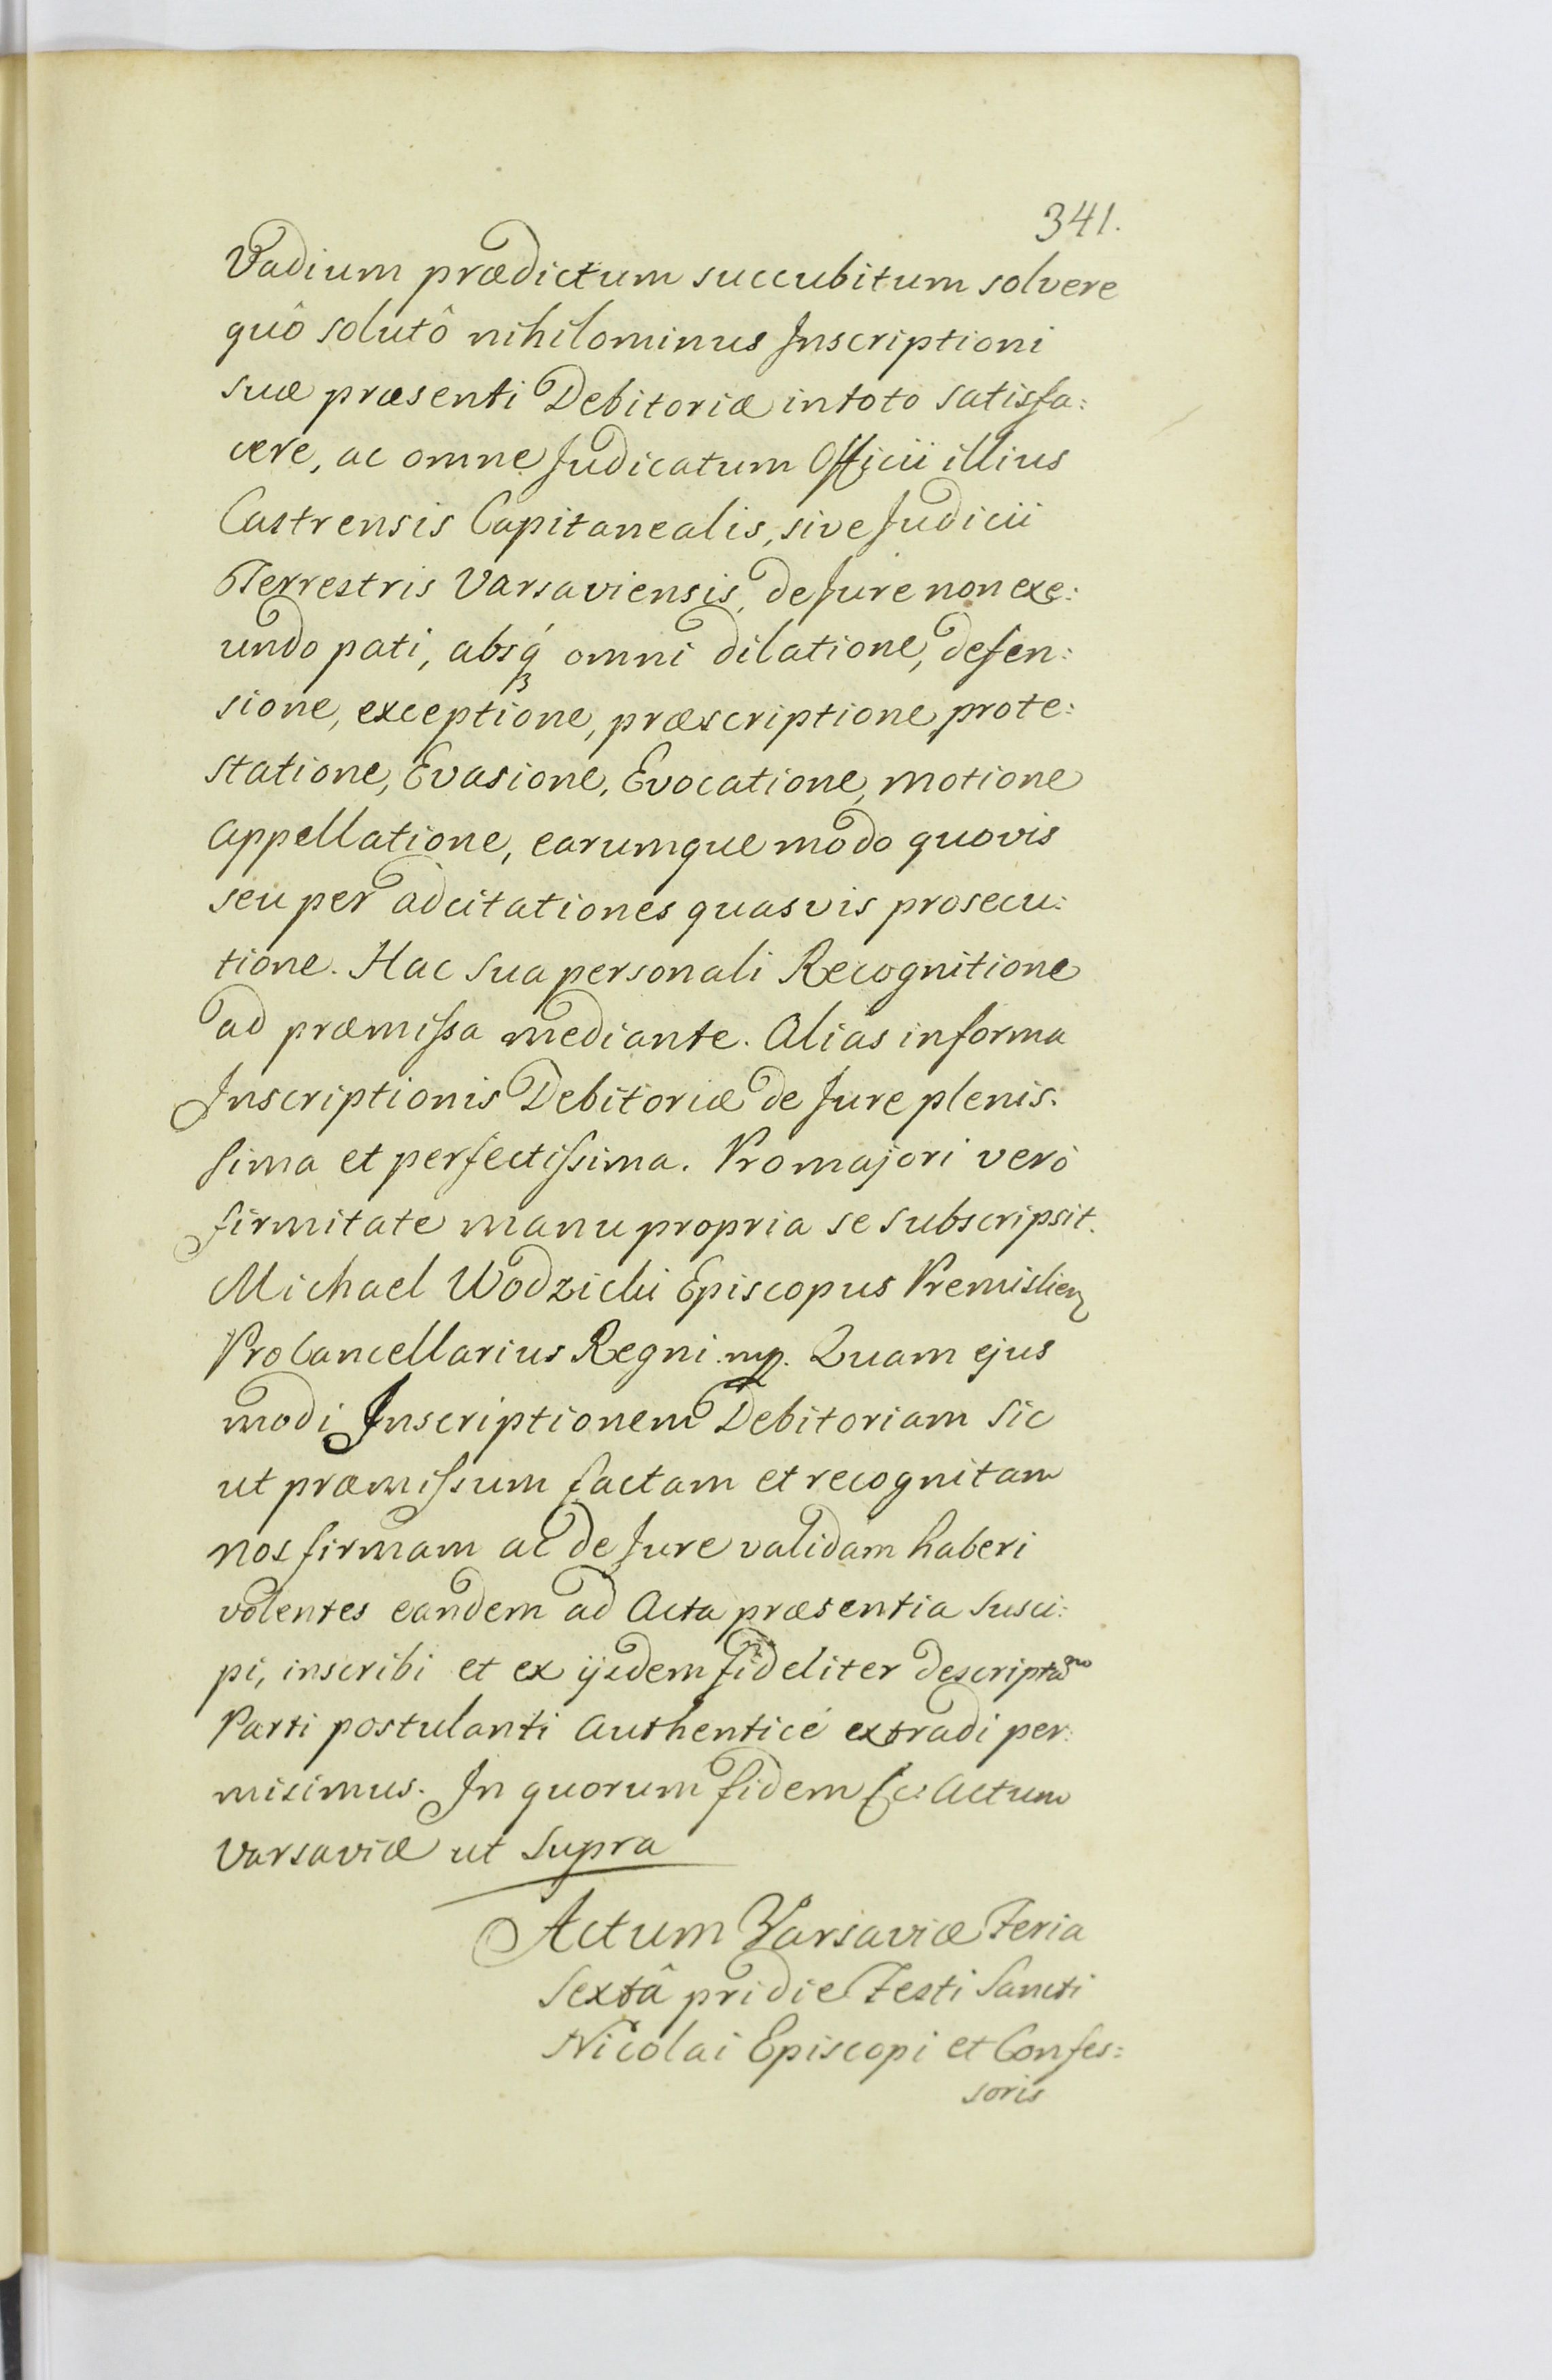 341.
Vadium prædictum succubitum solvere
quô solutô nihilominus Inscriptioni
suæ præsenti Debitoriæ in toto satisfa:
cere, ac omne Judicatum Officii illius
Castrensis Capitanealis, sive Judicii
Terrestris Varsaviensis, de Jure non exe:
undo pati, absq́ꝫ omni dilatione, defen:
sione, exceptione, præscriptione, prote:
statione, Evasione, Evocatione, motione
appellatione, earumque modo quovis
seu per adcitationes quasvis prosecu:
tione. Hac sua personali Recognitione
ad præmissa mediante. Alias in forma
Inscriptionis Debitoriæ de Jure plenis:
sima et perfectissima. Pro majori verò
firmitate manu propria se subscripsit.
Michael Wodzicki Episcopus Premislien
ProCancellarius Regni mp. Quam ejus
modi Inscriptionem Debitoriam sic
ut præmissum factam et recognitam
nos firmam ac de Jure validam haberi
volentes eandem ad Acta præsentia susci:
pi, inscribi et ex ijsdem fideliter descriptam
Parti postulanti authenticè extradi per:
misimus. In quorum fidem &c: Actum
Varsaviæ ut supra
Actum Varsaviæ Feria
Sextâ pridie Festi Sancti
Nicolai Episcopi et Confes:
soris